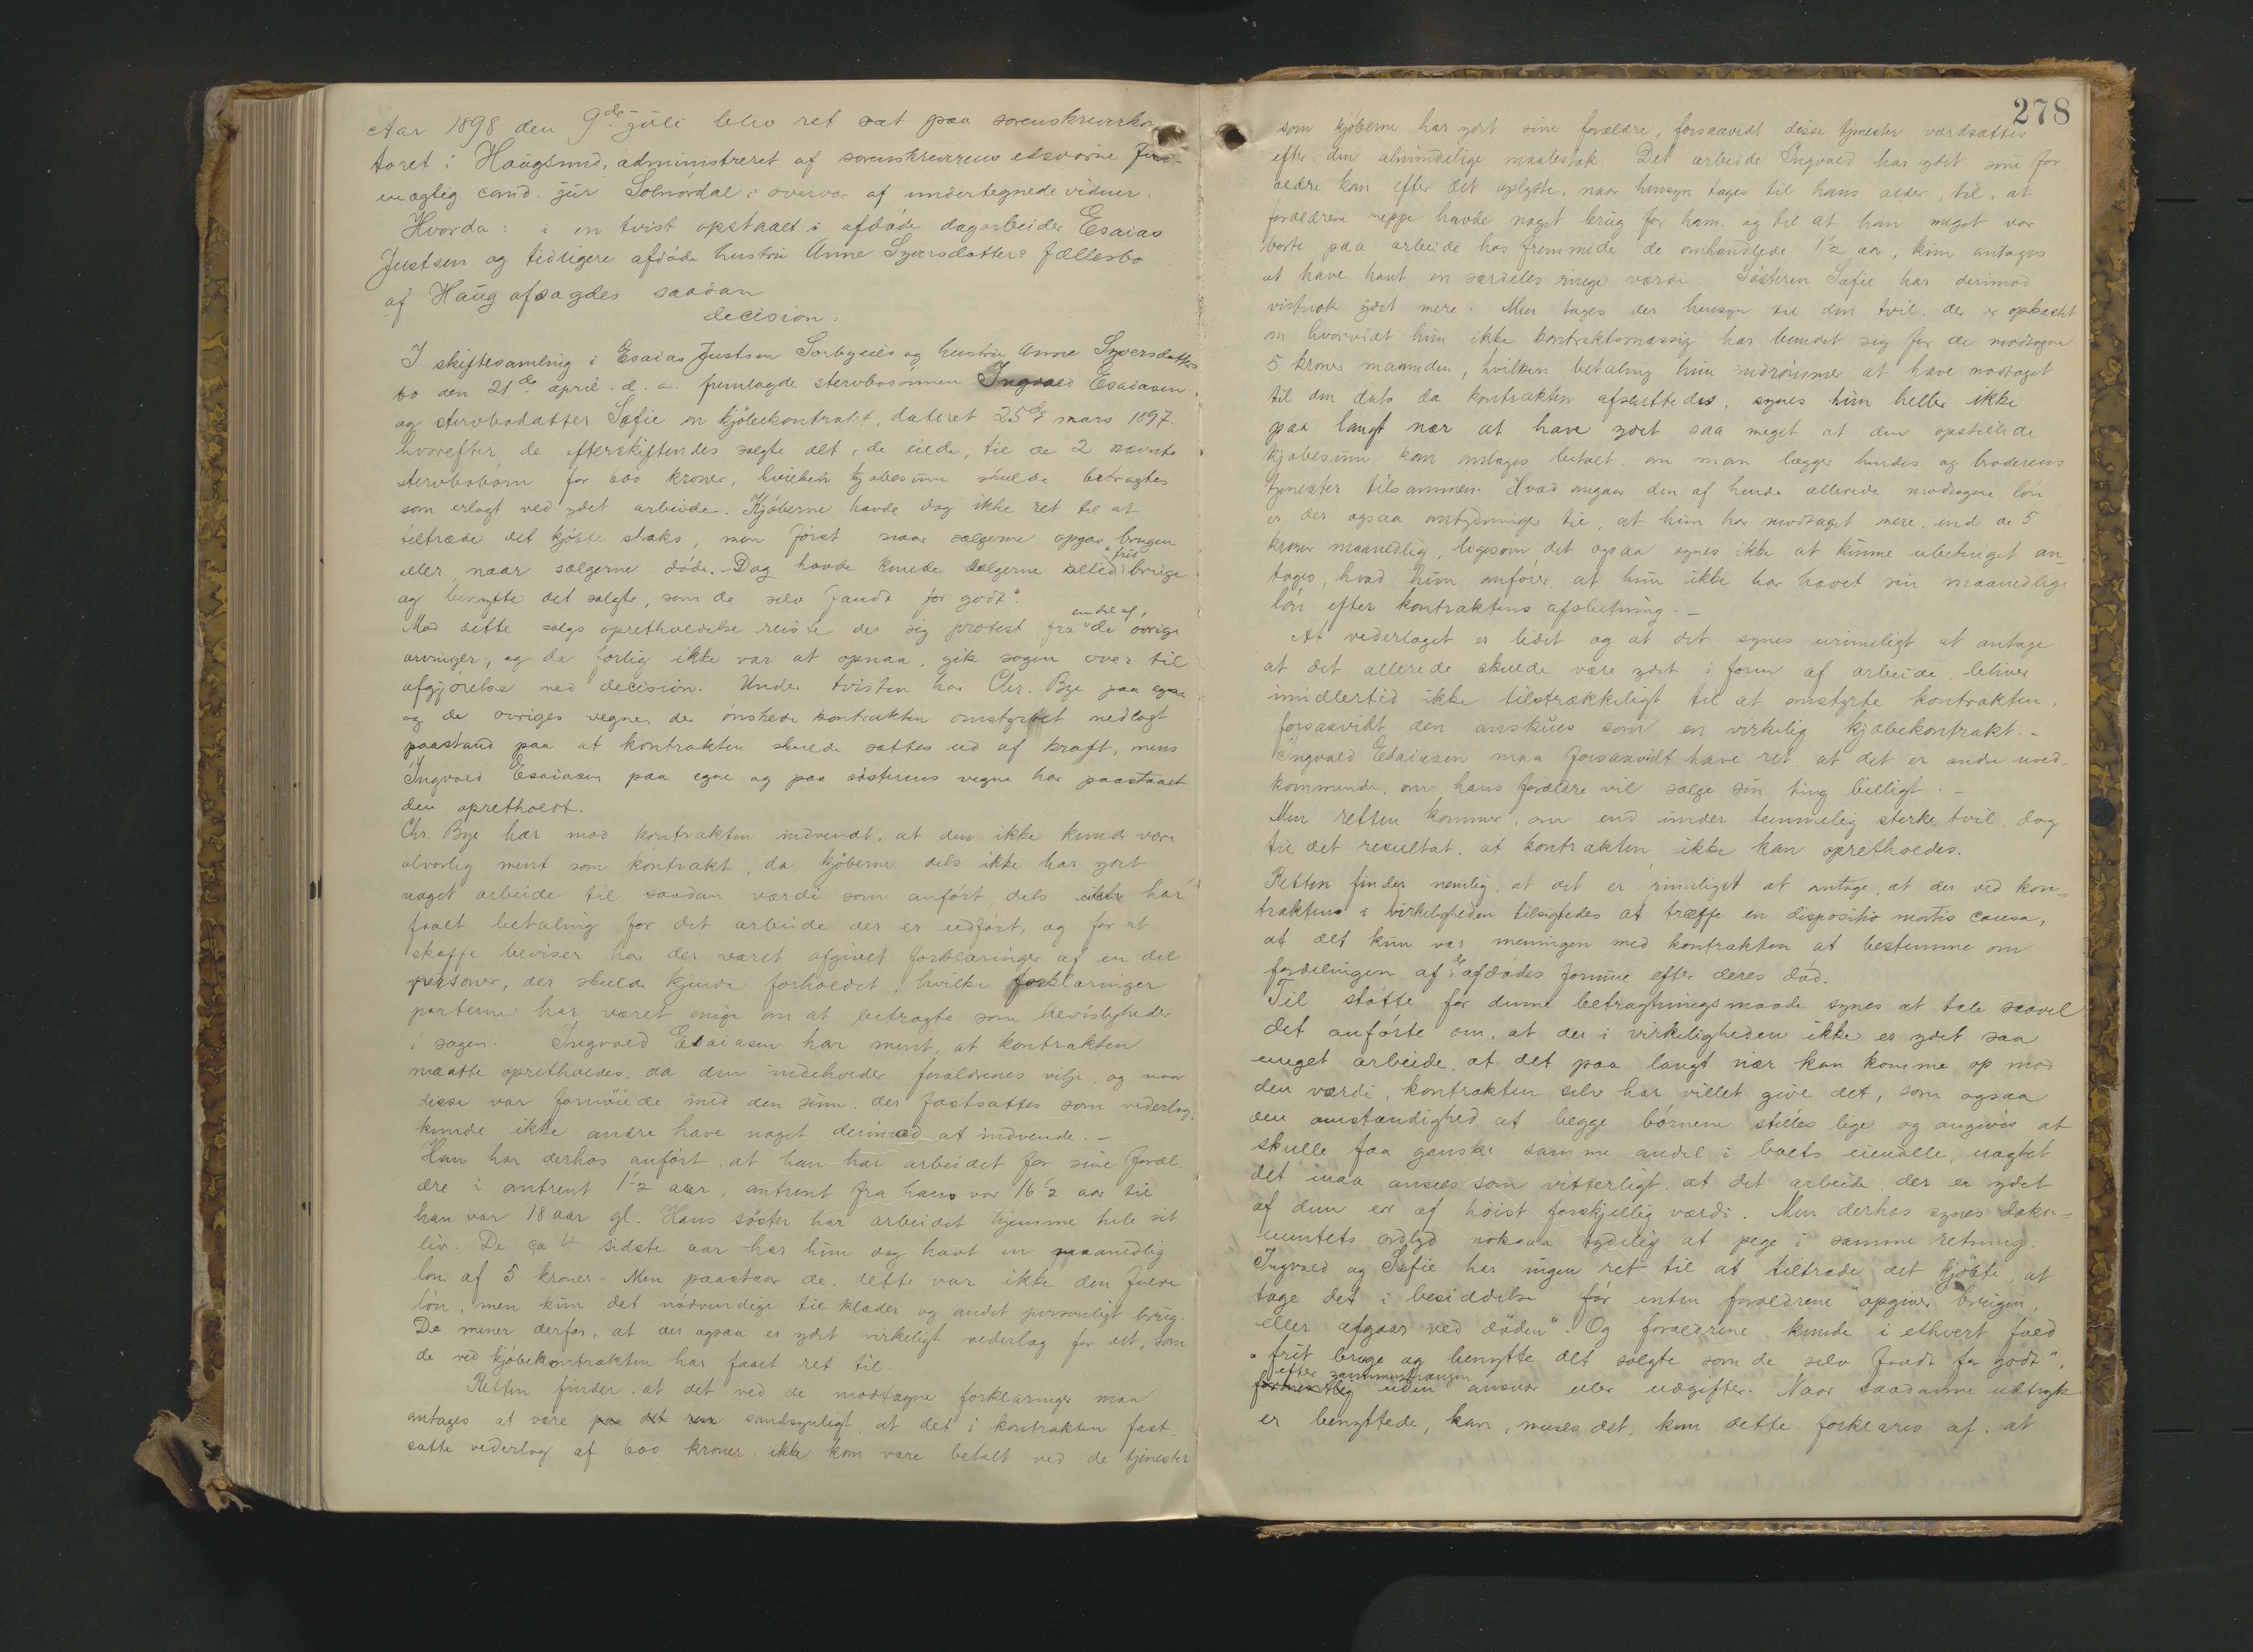 Aar 1898 den 9de juli blev ret sat paa sorenskriverkon-
toret i Haugsund, administreret af sorenskriverens edsvorne fuld-
mægtig cand. jur Solnørdal i overvær af undertegnede vidner.
Hvorda: i en tvist opstaaet i afdøde dagarbeider Esaias
Justsen og tidligere afdøde hustru Anne Syversdatters fællesbo
af Haug afsagdes saadan
decision.
I skiftesamling i Esaias Justsen Sorbyeies og hustru Anne Syversdatters
bo den 21de april d. a. fremlagde stervbosønnen Ingvald Esaiasen
og stervbodatter Sofie en kjøbekontrakt, dateret 25de mars 1897.
hvorefter de efterskiftendes solgte alt, de eiede, til de 2 nævnte
stervbobørn for 600 kroner, hvilken kjøbesum skulde betragtes
som erlagt ved ydet arbeide. Kjøberne havde dog ikke ret til at
tiltræde det kjøbte straks, men først naar sælgerne opgav brugen
eller naar sælgerne døde. Dog havde kunde sælgerne altid "frit bruge
og benytte det solgte, som de selv fandt for godt".
Mod dette salgs opretholdelse reiste der sig protest fra en del af de øvrige
arvinger, og da forlig ikke var at opnaa, gik sagen over til
afgjørelse ved decision. Under tvisten har Chr. Bye paa egne
og de øvriges vegne, der ønskede kontrakten omstyrtet nedlagt
paastand paa at kontrakten skulde sættes ud af kraft, mens
Ingvald Esaiasen paa egne og paa søsterens vegne har paastaaet
den opretholdt.
Chr. Bye har mod kontrakten indvendt, at den ikke kunde være
alvorlig ment som kontrakt, da kjøberne dels ikke har ydet
noget arbeide til saadan værdi som anført, dels ikke har
faaet betaling for det arbeide der er udført, og for at
skaffe beviser har der været afgivet forklaringer af en del
personer, der skulde kjende forholdet, hvilke forklaringer
parterne har været enige om at betragte som bevisligheder
i sagen. Ingvald Esaiasen har ment, at kontrakten
maatte opretholdes, da den indeholder forældrenes vilje, og naar
disse var fornøiede med den sum, der fastsattes som vederlag,
kunde ikke andre have noget derimod at indvende. –
Han har derhos anført, at han har arbeidet for sine foræl-
dre i omtrent 1½ aar, omtrent fra han var 16½ aar til
han var 18 aar gl. Hans søster har arbeidet hjemme hele sit
liv. De ca 4 sidste aar har hun dog havt en maanedlig
løn af 5 kroner. Men paastaar de, dette var ikke den fulde
løn, men kun det nødvendige til klæder og andet personligt brug.
De mener derfor, at der ogsaa er ydet virkeligt vederlag for det, som
de ved kjøbekontrakten har faaet ret til.
Retten finder, at det ved de modtagne forklaringer maa
antages at være sandsynligt, at det i kontrakten fast-
satte vederlag af 600 kroner ikke kan være betalt ved de tjenester
278
som kjøberne har ydet sine forældre, forsaavidt disse tjenester værdsættes
efter den almindelige maalestok. Det arbeide Ingvald har ydet sine for-
ældre kan efter det oplyste, naar hensyn tages til hans alder, til, at
forældrene neppe havde noget brug for ham, og til at han meget var
borte paa arbeide hos fremmede de omhandlede 1½ aar, kun antages
at have havt en særdeles ringe værdi. Søsteren Sofie har derimod
vistnok ydet mere. Men tages der hensyn til den tvil, der er opkastet
om hvorvidt hun ikke kontraktsmæssig har bundet sig for de modtagne
5 kroner maaneden, hvilken betaling hun indrømmer at have modtaget
til den dato da kontrakten afsluttedes, synes hun heller ikke
paa langt nær at have ydet saa meget at den opstillede
kjøbesum kan antages betalt, om man lægger hendes og broderens
tjenester tilsammen. Hvad angaar den af hende allerede modtagne løn
er der ogsaa antydninger til, at hun har modtaget mere end de 5
kroner maanedlig, ligesom det ogsaa synes ikke at kunne ubetinget an-
tages, hvad hun anfører, at hun ikke har havet sin maanedlige
løn efter kontraktens afslutning. –
At vederlaget er lidet og at det synes urimeligt at antage
at det allerede skulde være ydet i form af arbeide, bliver
imidlertid ikke tilstrækkeligt til at omstyrte kontrakten,
forsaavidt den anskues som en virkelig kjøbekontrakt. –
Ingvald Esaiasen maa forsaavidt have ret, at det er andre uved-
kommende, om hans forældre vil sælge sin ting billigt. –
Men retten kommer, om end under temmelig sterke tvil, dog
til det resultat, at kontrakten ikke kan opretholdes.
Retten finder nemlig, at det er rimeligst at antage, at der ved kon-
trakten i virkeligheden tilsigtedes at træffe en dispositio mortis causa,
at det kun var meningen med kontrakten at bestemme om
fordelingen af de afdødes formue efter deres død.
Til støtte for denne betragtningsmaade synes at tale saavel
det anførte om, at der i virkeligheden ikke er ydet saa
meget arbeide, at det paa langt nær kan komme op mod
den værdi, kontrakten selv har villet give det, som ogsaa
den omstændighed, at begge børnene stilles lige og angives at
skulle faa ganske samme andel i boets eiendele, uagtet
det maa ansees som vitterligt, at det arbeide, der er ydet
af dem er af høist forskjellig værdi. Men derhos synes doku-
mentets ordlyd noksaa tydelig at pege i samme retning.
Ingvald og Sofie har ingen ret til at tiltræde det kjøbte, at
tage det i besiddelse før enten forældrene "opgiver brugen,
eller afgaar ved døden". Og forældrene kunde i ethvert fald
"frit bruge og benytte det solgte som de selv fandt for godt",
efter sammenhængen uden ansvar eller udgifter. Naar saadanne udtryk
er benyttede, kan, menes det, kun dette forklares af, at